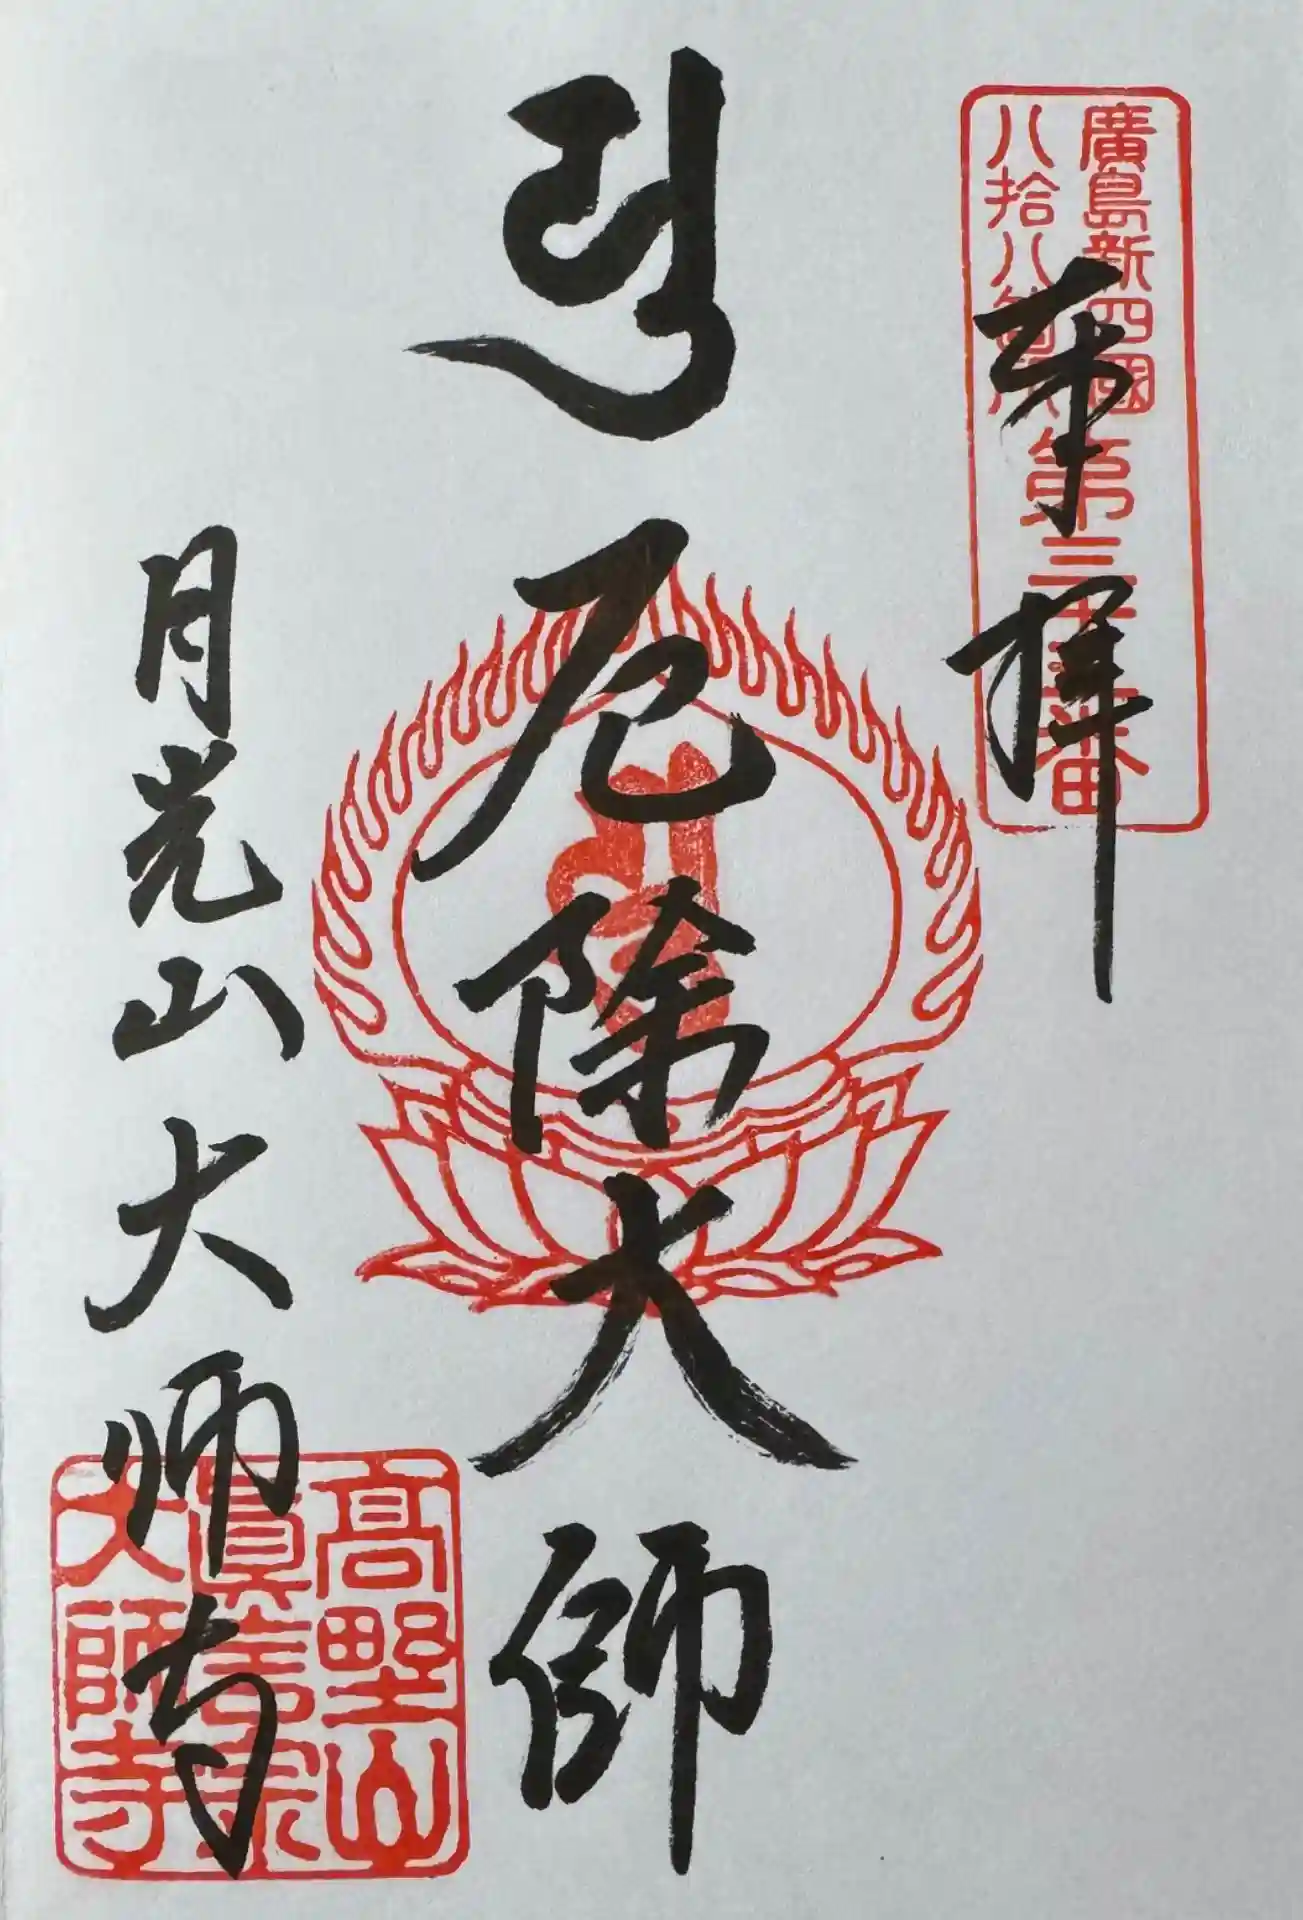 廣島新四國
八拾八箇所
第三十三番
奉拝
厄除大師
月光山大师寺
高野山
真言宗
大師寺